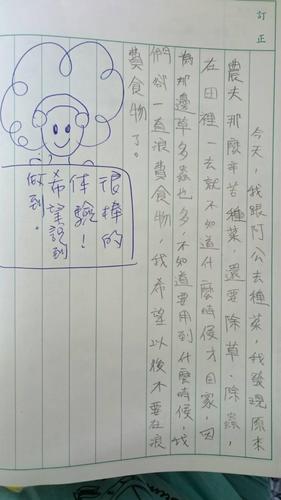 訂正
今天,我跟阿公去種菜,我發現原來
農夫那麼辛苦種菜,還要除草、除蟲,
在田裡一去就不知道什麼時候才回家,因
為那邊草多蟲也多,不知道要用到什麼時候,我
們卻一直浪費食物,我希望以後不要在浪
費食物了。
很棒的
体驗!
希望說到
做到。